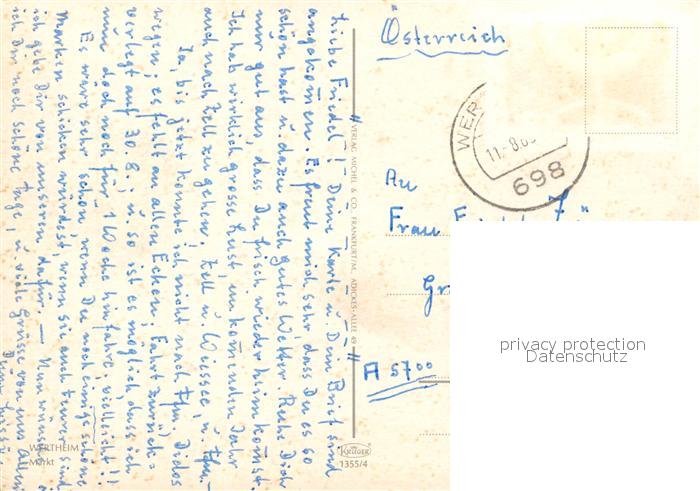 Österreich
WER
11.-8.6
698
An
Frau
Gr
A 5700
privacy protection
Datenschutz
Liebe Friedel! Deine Karte u. Dein Brief sind
angekommen. Es freut mich sehr dass Du es so
schön hast u. dazu auch gutes Wetter. Ruhe Dich
nur gut aus, dass Du frisch wieder heim kommst.
Ich hab wirklich grosse Lust, im kommenden Jahr
auch nach Zell zu gehen. Zell u. u.
Ja, bis jetzt konnte ich nicht nach
wegen; es fehlt an allen Ecken;
verlegt auf 30.8. u. so ist es möglich dass ich
nun doch noch für 1 Woche hinfahre, vielleicht!!
Es wäre sehr schön, wenn Du noch einige schöne
Marken schicken würdest, wenn sie auch teurer sind
ich gebe Dir von unseren dafür. — Nun wünsche
ich Dir noch schöne Tage, u. viele Grüsse von uns Allen
Deine
VERLAG MICHEL & CO., FRANKFURT/M., ADICKES-ALLEE 49
WERTHEIM
Markt
KRÜGER
1355/4